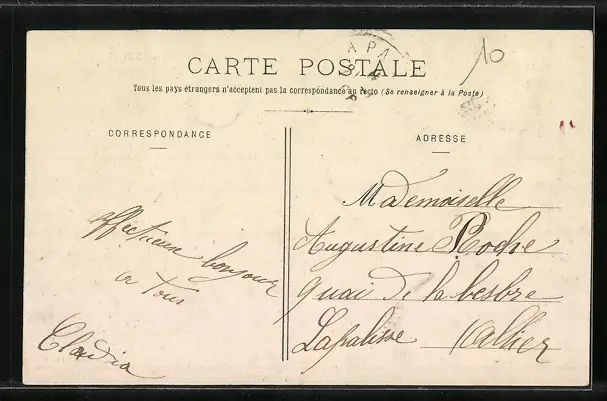 10
APA
CARTE POSTALE
Tous les pays étrangers n'acceptent pas la correspondance au recto (Se renseigner à la Poste)
CORRESPONDANCE
Affectueux bonjour
a Tous
Claudia
ADRESSE
Mademoiselle
Augustine Roche
quai de la besbre
Lapalisse Allier